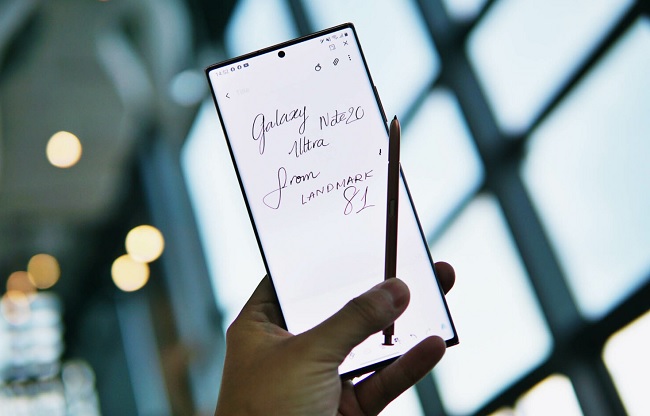 Galaxy Note20
Ultra
from
LANDMARK
81